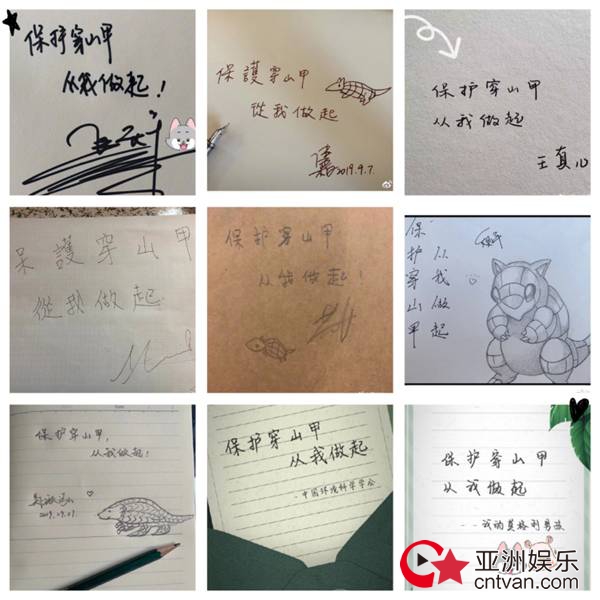 保护穿山甲
从我做起！
保護穿山甲
從我做起
2019.9.7.
保护穿山甲
从我做起
王真儿
保護穿山甲
從我做起
保护穿山甲
从我做起！
保护穿山甲
从我做起
保护穿山甲，
从我做起！
2019.09.07
保护穿山甲
从我做起
-中国环境科学学会
保护穿山甲
从我做起
--我的莫格利男孩
亚洲娱乐
cntvan.com